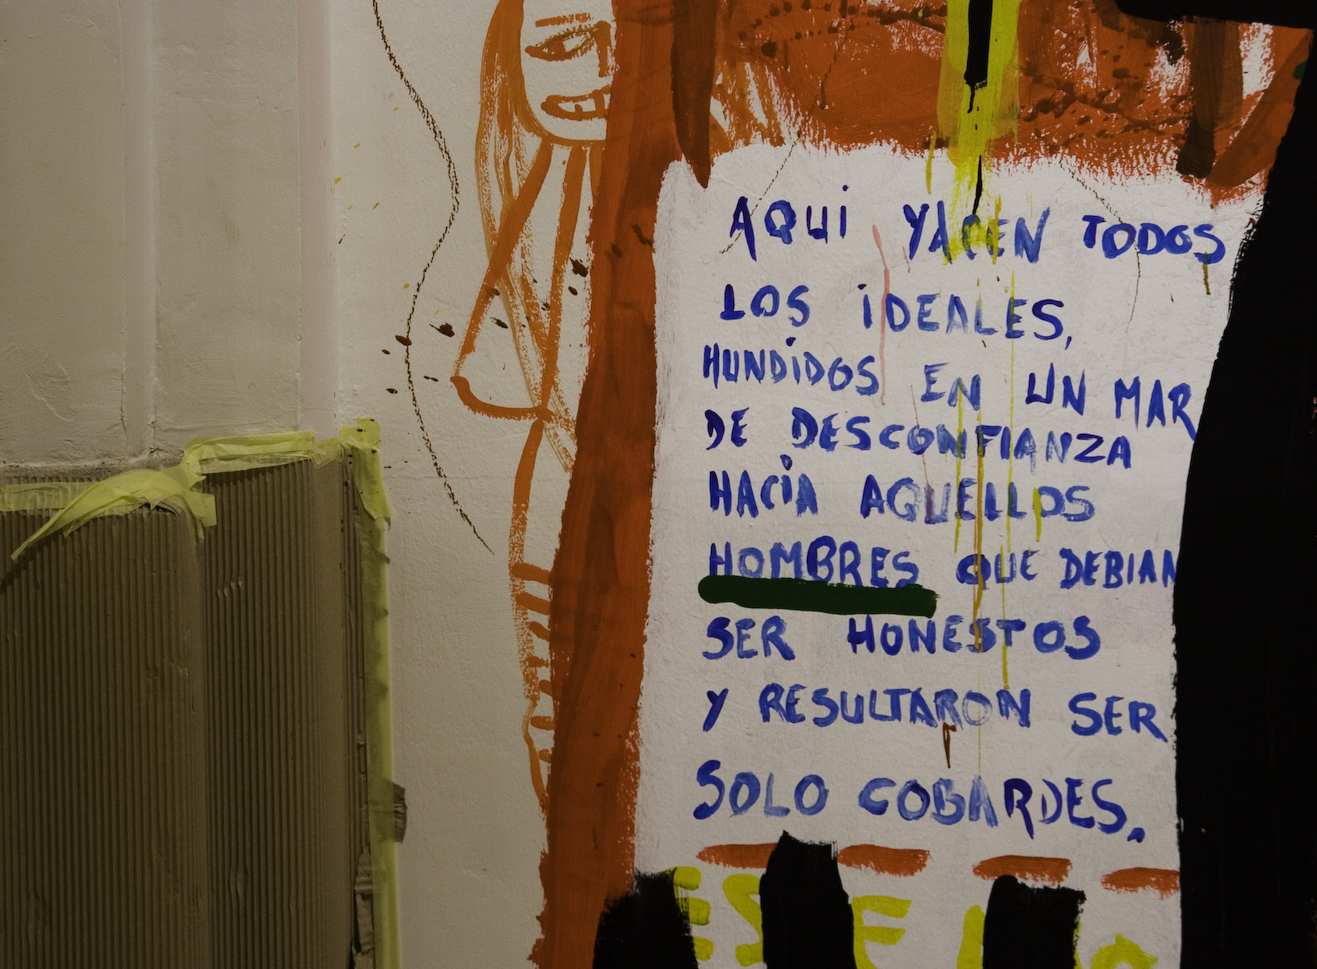 AQUI YACEN TODOS
LOS IDEALES,
HUNDIDOS EN UN MAR
DE DESCONFIANZA
HACIA AQUELLOS
HOMBRES QUE DEBIAN
SER HONESTOS
Y RESULTARON SER
SOLO COBARDES.